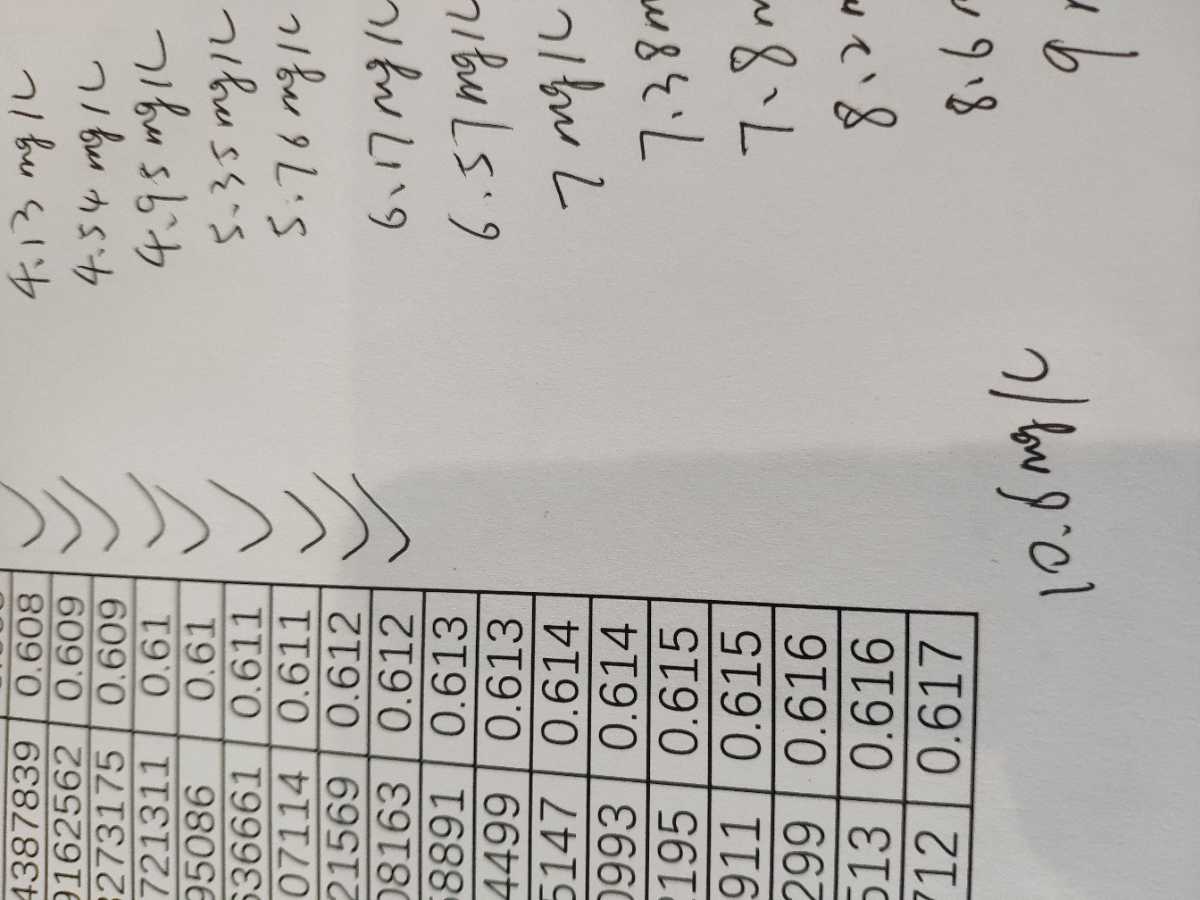 43887839 0.608 4.13 mg/L
9162562 0.609 4.54 mg/L
273175 0.609 4.95 mg/L
721311 0.61 5.35 mg/L
95086 0.61 5.76 mg/L
36661 0.611
07114 0.611 6.17 mg/L
21569 0.612 6.57 mg/L
08163 0.612 7 mg/L
8891 0.613 7.38 m
4499 0.613 7.8
5147 0.614 8.2
0993 0.614 8.6
195 0.615 9
911 0.615
299 0.616
513 0.616
712 0.617 10.8 mg/L